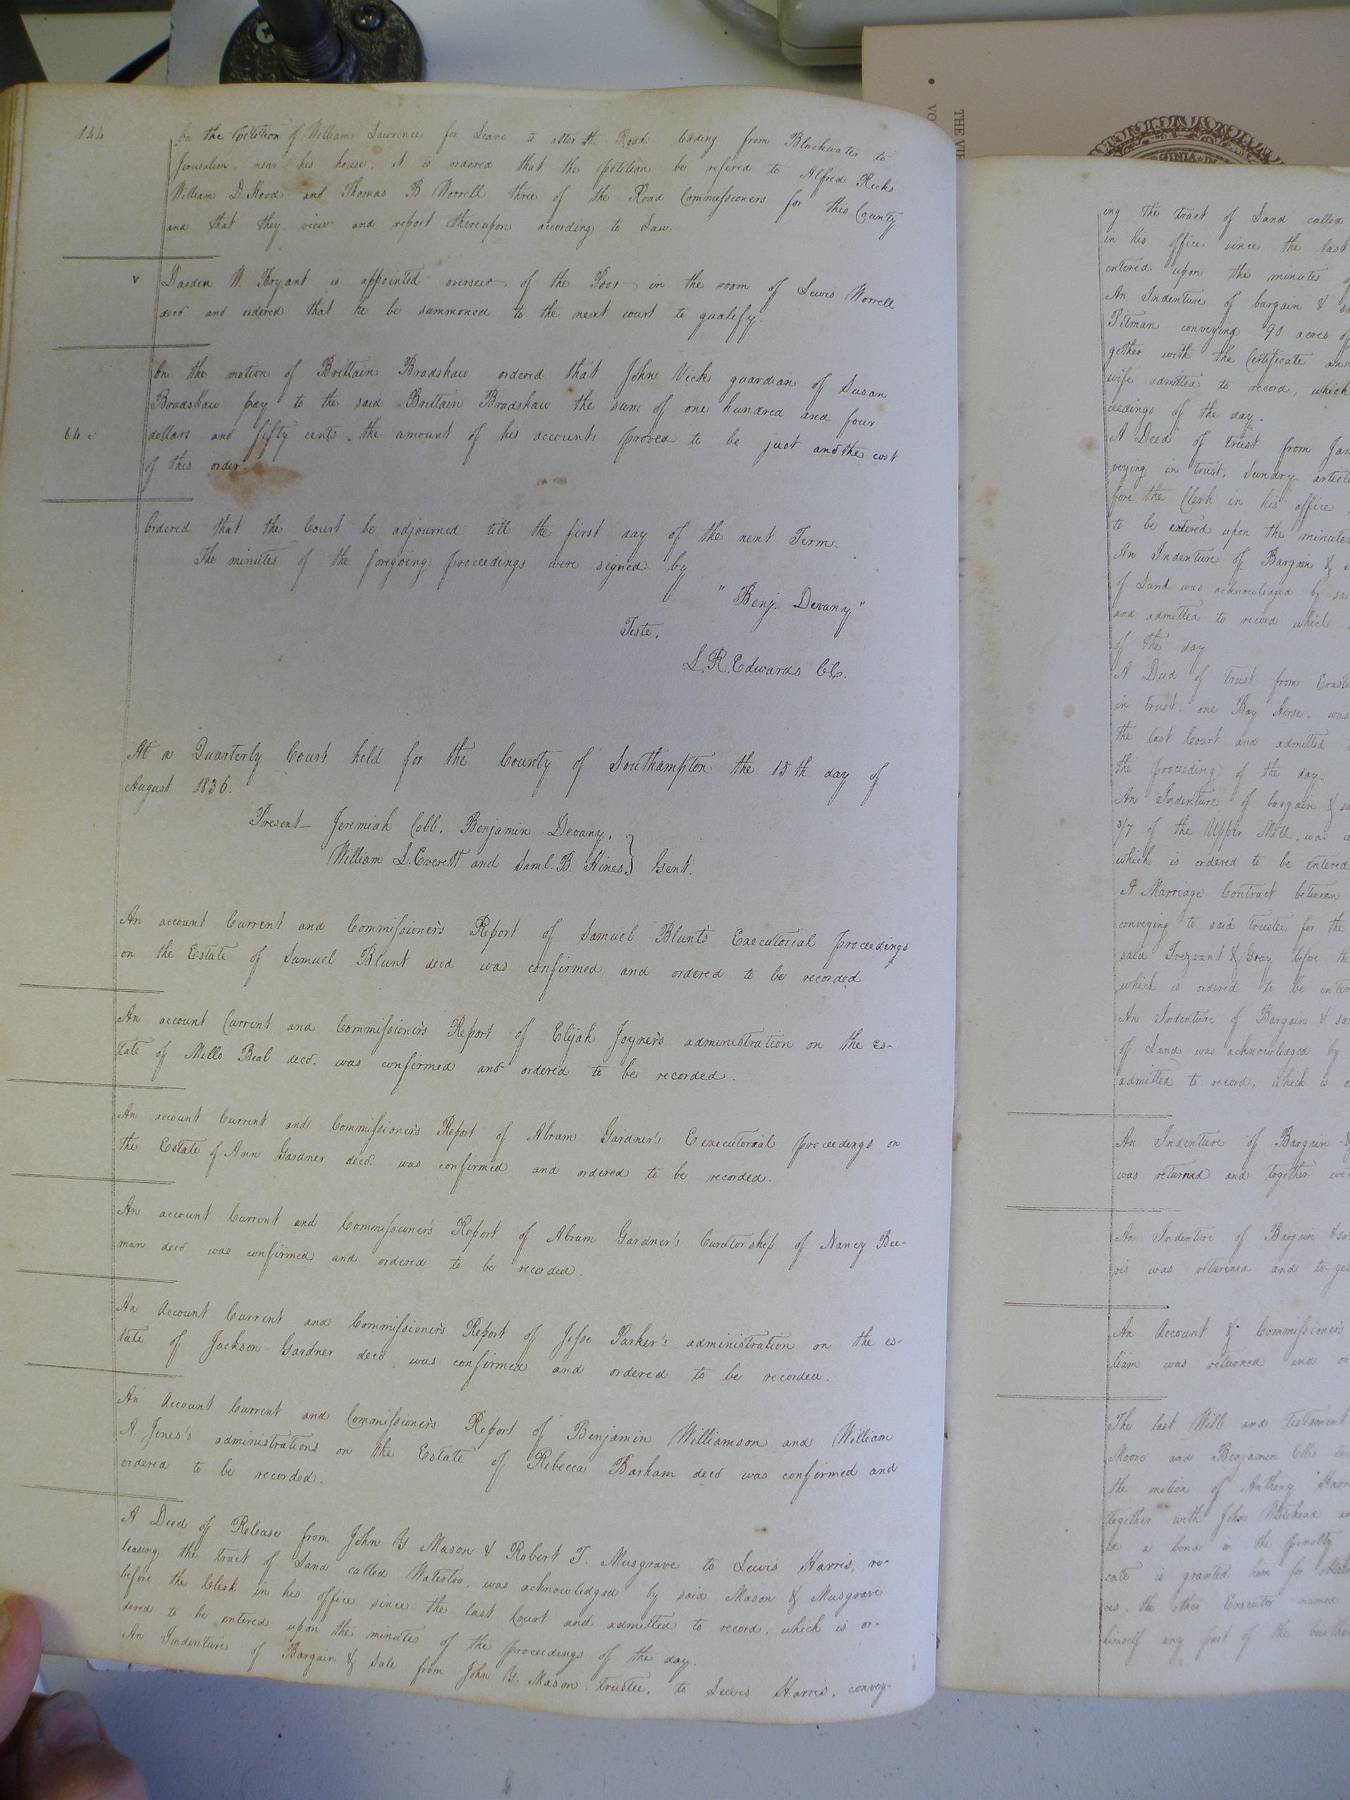 144
On the Petition of William Lawrence for Leave to alter the Road leading from Blackwater to
Jerusalem near his house, it is ordered that the petition be refered to Alfred Ricks
William D. Hood and Thomas B Worrell three of the Road Commissioners for this County
and that they view and report thereupon according to Law.
v Darden W. Bryant is appointed overseer of the Poor in the room of Lewis Worrell
decd and ordered that he be summoned to the next court to qualify.
On the motion of Brittain Bradshaw ordered that John Vick guardian of Susan
Bradshaw pay to the said Brittain Bradshaw the sum of one hundred and four
64 c dollars and fifty cents, the amount of his accounts proved to be just and the cost
of this order.
Ordered that the Court be adjourned till the first day of the next Term.
The minutes of the foregoing proceedings were signed by
"Benj. Devany"
Teste,
L. R. Edwards Clk.
At a Quarterly Court held for the County of Southampton the 15th day of
August 1836.
Present— Jeremiah Cobb, Benjamin Devany,
William L. Everett and Saml. B. Hines } Gent.
An account Current and Commissioner's Report of Samuel Blunts Executorial proceedings
on the Estate of Samuel Blunt decd was confirmed and ordered to be recorded
An account Current and Commissioner's Report of Elijah Joyner's administration on the es-
tate of Mills Beal decd. was confirmed and ordered to be recorded.
An account Current and Commissioner's Report of Abram Gardner's Executorial proceedings on
the Estate of Ann Gardner decd. was confirmed and ordered to be recorded.
An account Current and Commissioner's Report of Abram Gardner's Curatorship of Nancy Bee-
man decd was confirmed and ordered to be recorded.
An Account Current and Commissioner's Report of Jesse Parker's administration on the es-
tate of Jackson Gardner decd was confirmed and ordered to be recorded.
An Account Current and Commissioner's Report of Benjamin Williamson and William
A. Jones's administrations on the Estate of Rebecca Barham decd was confirmed and
ordered to be recorded.
A Deed of Release from John Y Mason & Robert T. Musgrave to Lewis Harris, re-
leasing the tract of Land called Waterloo, was acknowledged by said Mason & Musgrave
before the Clerk in his office since the last Court and admitted to record, which is or-
dered to be entered upon the minutes of the proceedings of the day.
An Indenture of Bargain & Sale from John Y. Mason trustee, to Lewis Harris, convey-
ing the tract of Land called
in his office since the last
entered upon the minutes of
An Indenture of bargain &
Pitman conveying 90 acres of
gether with the Certificate
wife admitted to record, which
ceedings of the day.
A Deed of trust from
veying in trust, Sundry
fore the Clerk in his office
to be entered upon the minutes
An Indenture of Bargain &
of Land was acknowledged by
and admitted to record which
of the day
A Deed of trust from
in trust, one Bay Horse, was
the last Court and admitted
the proceeding of the day.
An Indenture of bargain &
3/7 of the Upper Mill was
which is ordered to be entered
A Marriage Contract between
conveying to said trustee for the
said Trezvant & Gray, before the
which is ordered to be
An Indenture of Bargain &
of Land was acknowledged by
admitted to record, which is
An Indenture of Bargain
was returned and together
An Indenture of Bargain
was returned and
An Account & Commissioner's
liam was returned and
The last Will and testament
Moore and Benjamin
the motion of Anthony
together with John
in a bond in the penalty
cate is granted him for
the other Executor named
himself any part of the
THE VIR